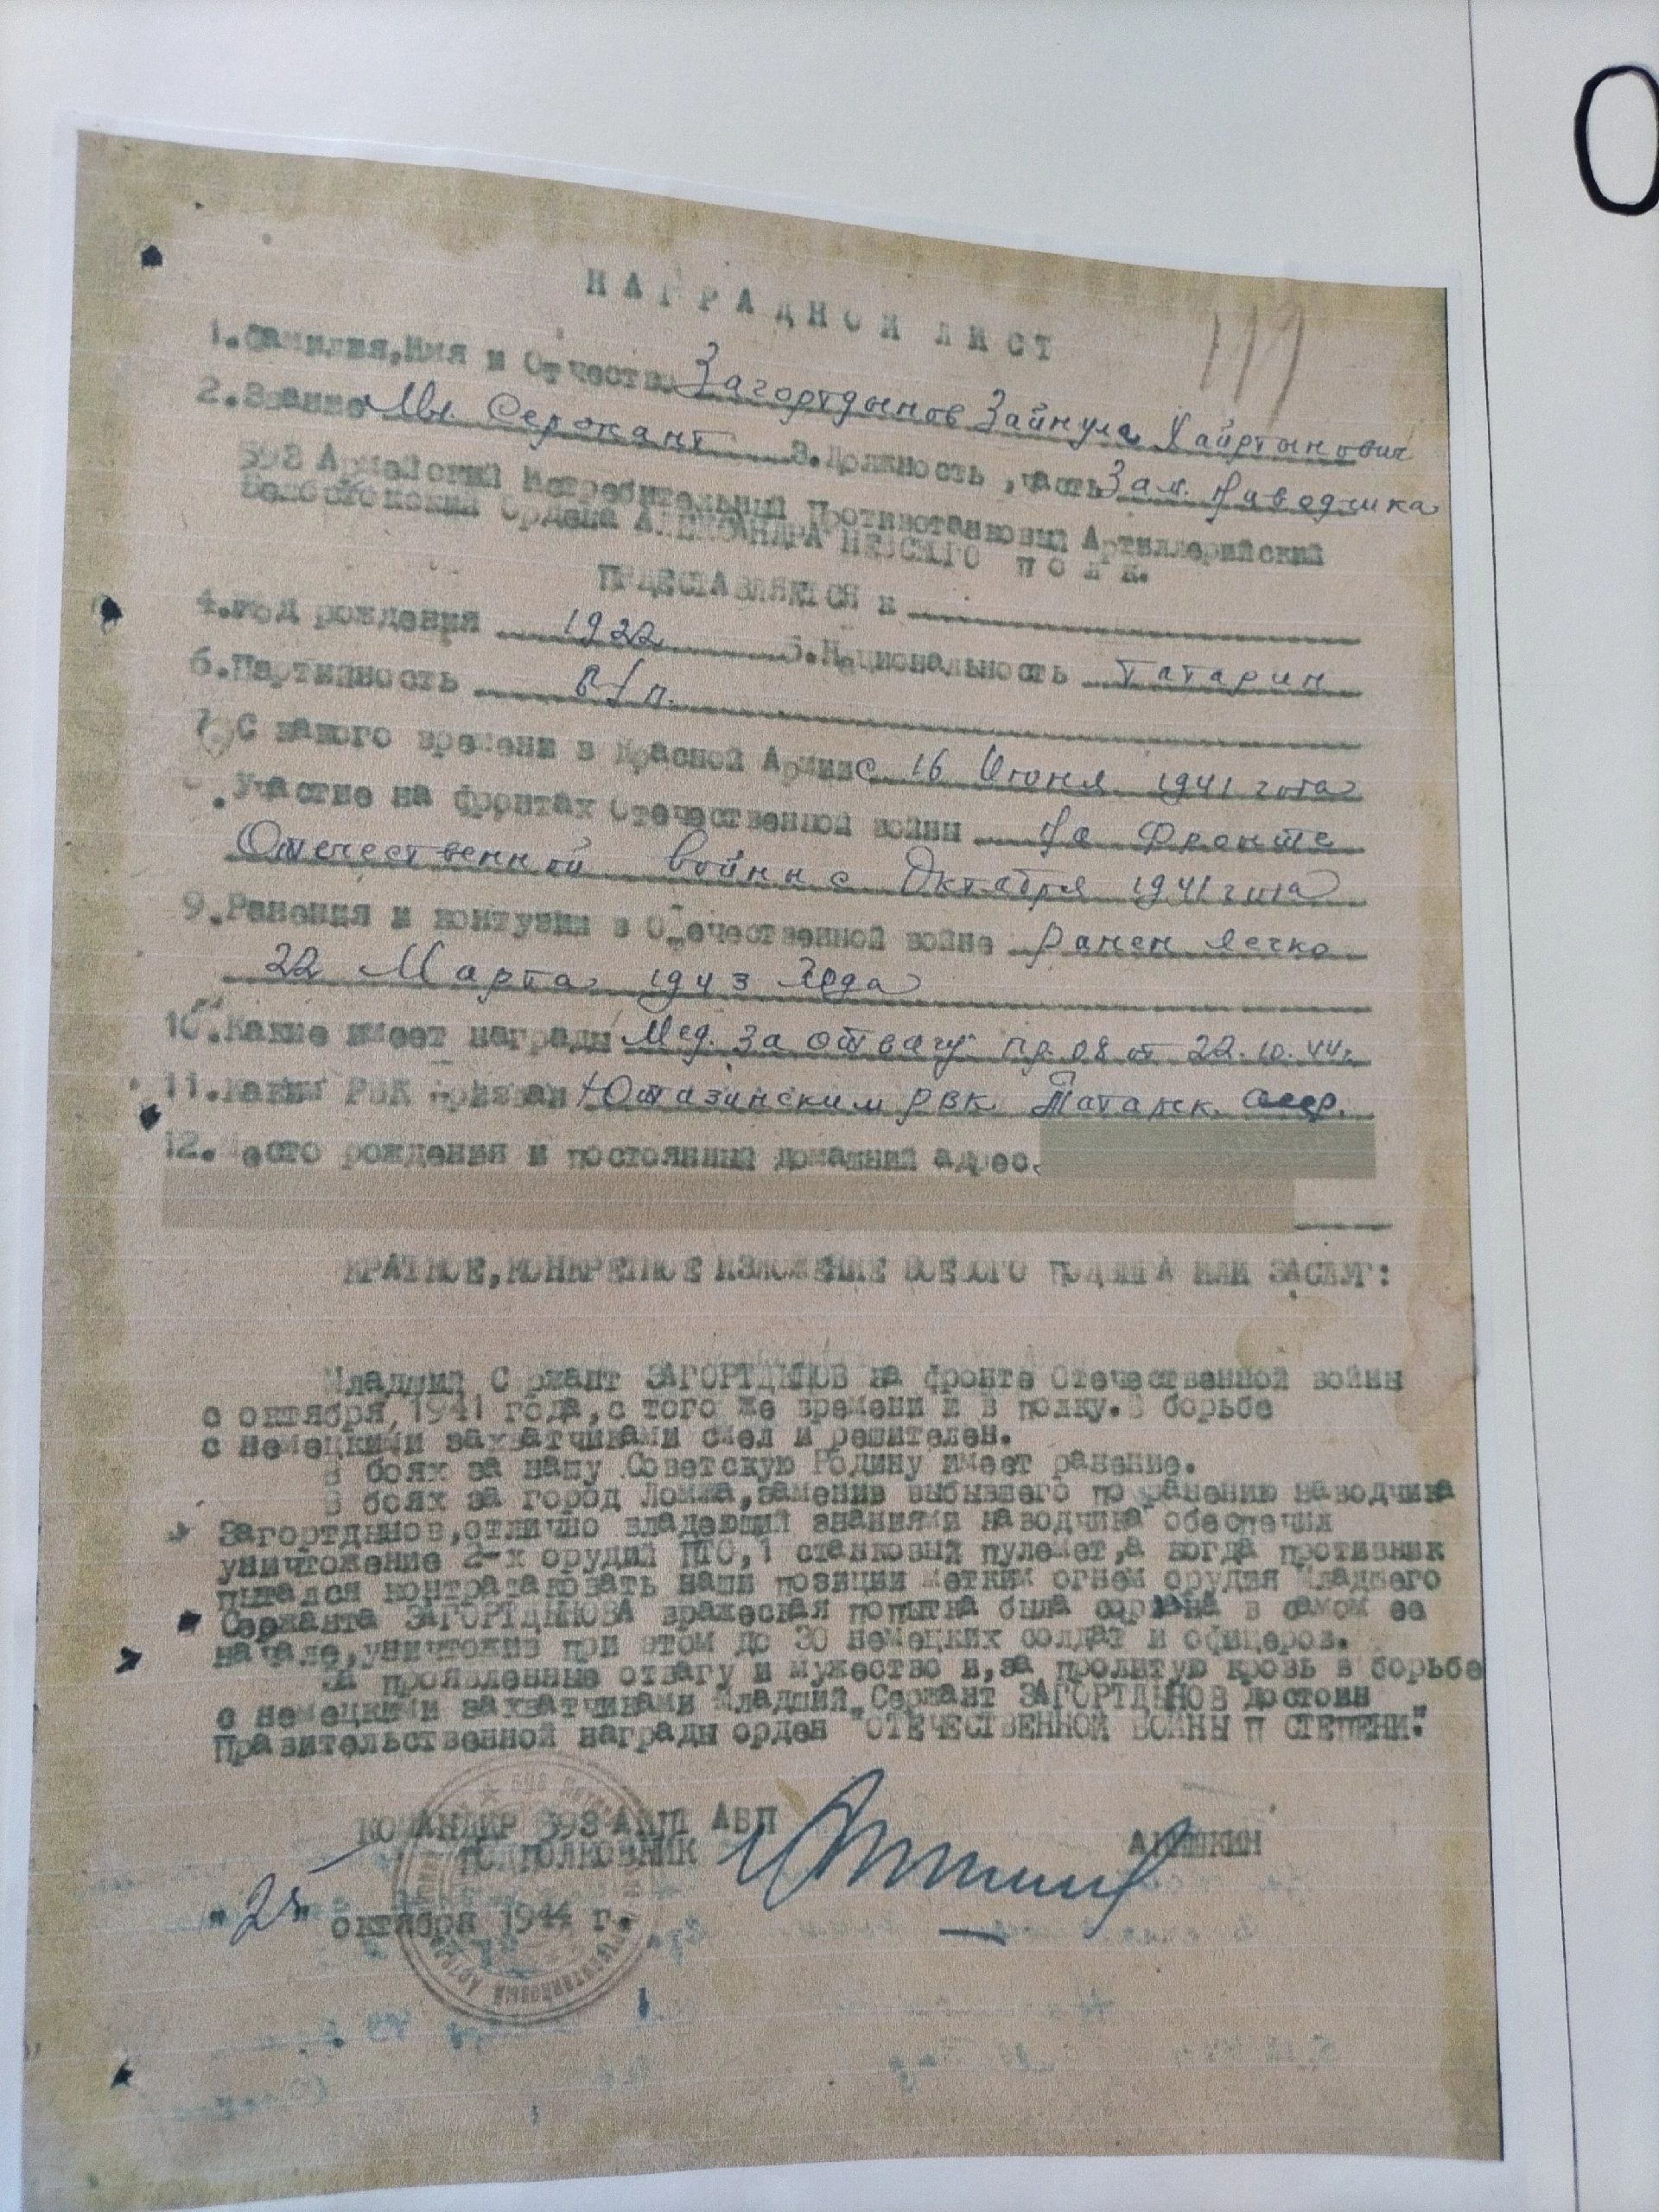 НАГРАДНОЙ ЛИСТ
1. Фамилия, Имя и Отчество Загортдынов Зайнула Хайртынович
2. Звание Мл. Сержант 3. Должность, часть Зам. Наводчика
Армейский Истребительный Противотанковый Артиллерийский
Белостокский Ордена АЛЕКСАНДРА НЕВСКОГО ПОЛК.
ПРДЕСТАВЛЯЕТСЯ к
4. год рождения 1922 5. Национальность Татарин
6. Партийность б/п.
7. С какого времени в Красной Армии с 16 Июня 1941 года
Участие на фронтах Отечественной войны На Фронте
Отечественной войны с Октября 1941 года
9. Ранения и контузии в Отечественной войне ранен легко
22 Марта 1943 года
10. Какие имеет награды Мед. За отвагу пр. 08 от 22.10.44г.
11. Каким РВК призван Ютазинским РВК Татарск. АССР.
12. Место рождения и постоянный домашний адрес.
КРАТКОЕ, КОНКРЕТНОЕ ИЗЛОЖЕНИЕ БОЕВОГО ПОДВИГА ИЛИ ЗАСЛУГ:
Младший Сержант ЗАГОРТДЫНОВ на фронте Отечественной войны
с октября 1941 года, с того же времени и в полку. В борьбе
с немецкими захватчиками смел и решителен.
В боях за нашу Советскую Родину имеет ранение.
В боях за город Ломжа, заменив выбывшего по ранению наводчика
Загортдынов, отлично владеющий знаниями наводчика обеспечил
уничтожение 2-х орудий ПТО, 1 станковый пулемет, а когда противник
пытался контратаковать наши позиции метким огнем орудия Младшего
Сержанта ЗАГОРТДЫНОВА вражеская попытка была сорвана в самом ее
начале, уничтожив при этом до 30 немецких солдат и офицеров.
За проявленные отвагу и мужество и, за пролитую кровь в борьбе
с немецкими захватчиками Младший Сержант ЗАГОРТДЫНОВ достоин
Правительственной награды орден "ОТЕЧЕСТВЕННОЙ ВОЙНЫ П СТЕПЕНИ".
КОМАНДИР АИПТ АБП
ПОДПОЛКОВНИК
"25" октября 1944 г.